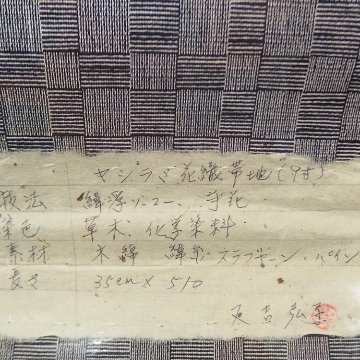 ヤシラミ花織帯地(9寸)
技法 緯浮ソーコー、手花
染色 草木、化学染料
素材 木綿 緯糸、スラブヤーン、パイン
長さ 35cm×510